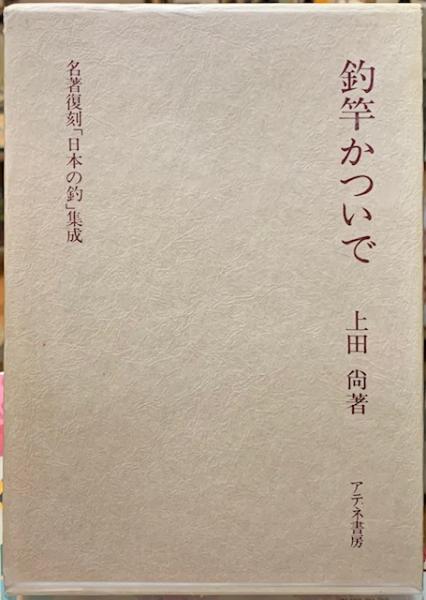 釣竿かついで
上田 尙著
アテネ書房
名著復刻「日本の釣」集成